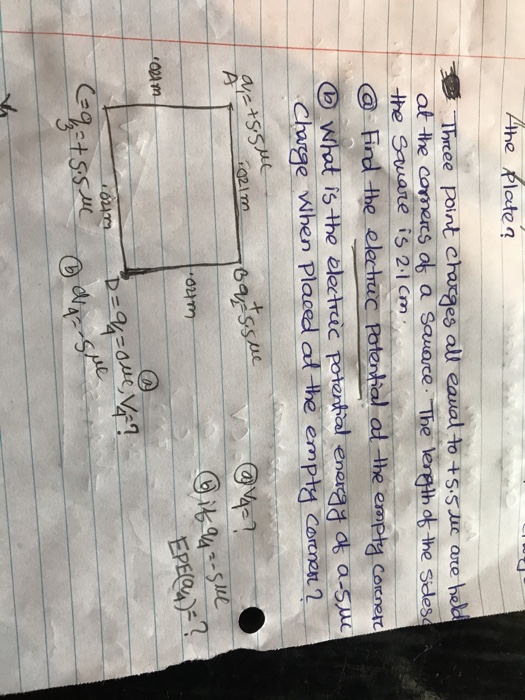 the plate?
Three point charges all equal to +5.5 μc are held
at the corners of a square. The length of the sides
the square is 2.1 cm.
ⓐ Find the electric potential at the empty corner
ⓑ What is the electric potential energy of a -5μc
charge when placed at the empty corner?
q₁=+5.5μc
A
.021m
B q₂=+5.5μc
ⓐ V₄=?
.021m
.021m
ⓑ if q₄=-5μc
EPE(q₄)=?
.021m
C=q₃=+5.5μc
D=q₄=0μc, V₄=?
ⓐ
ⓑ q₄=-5μc